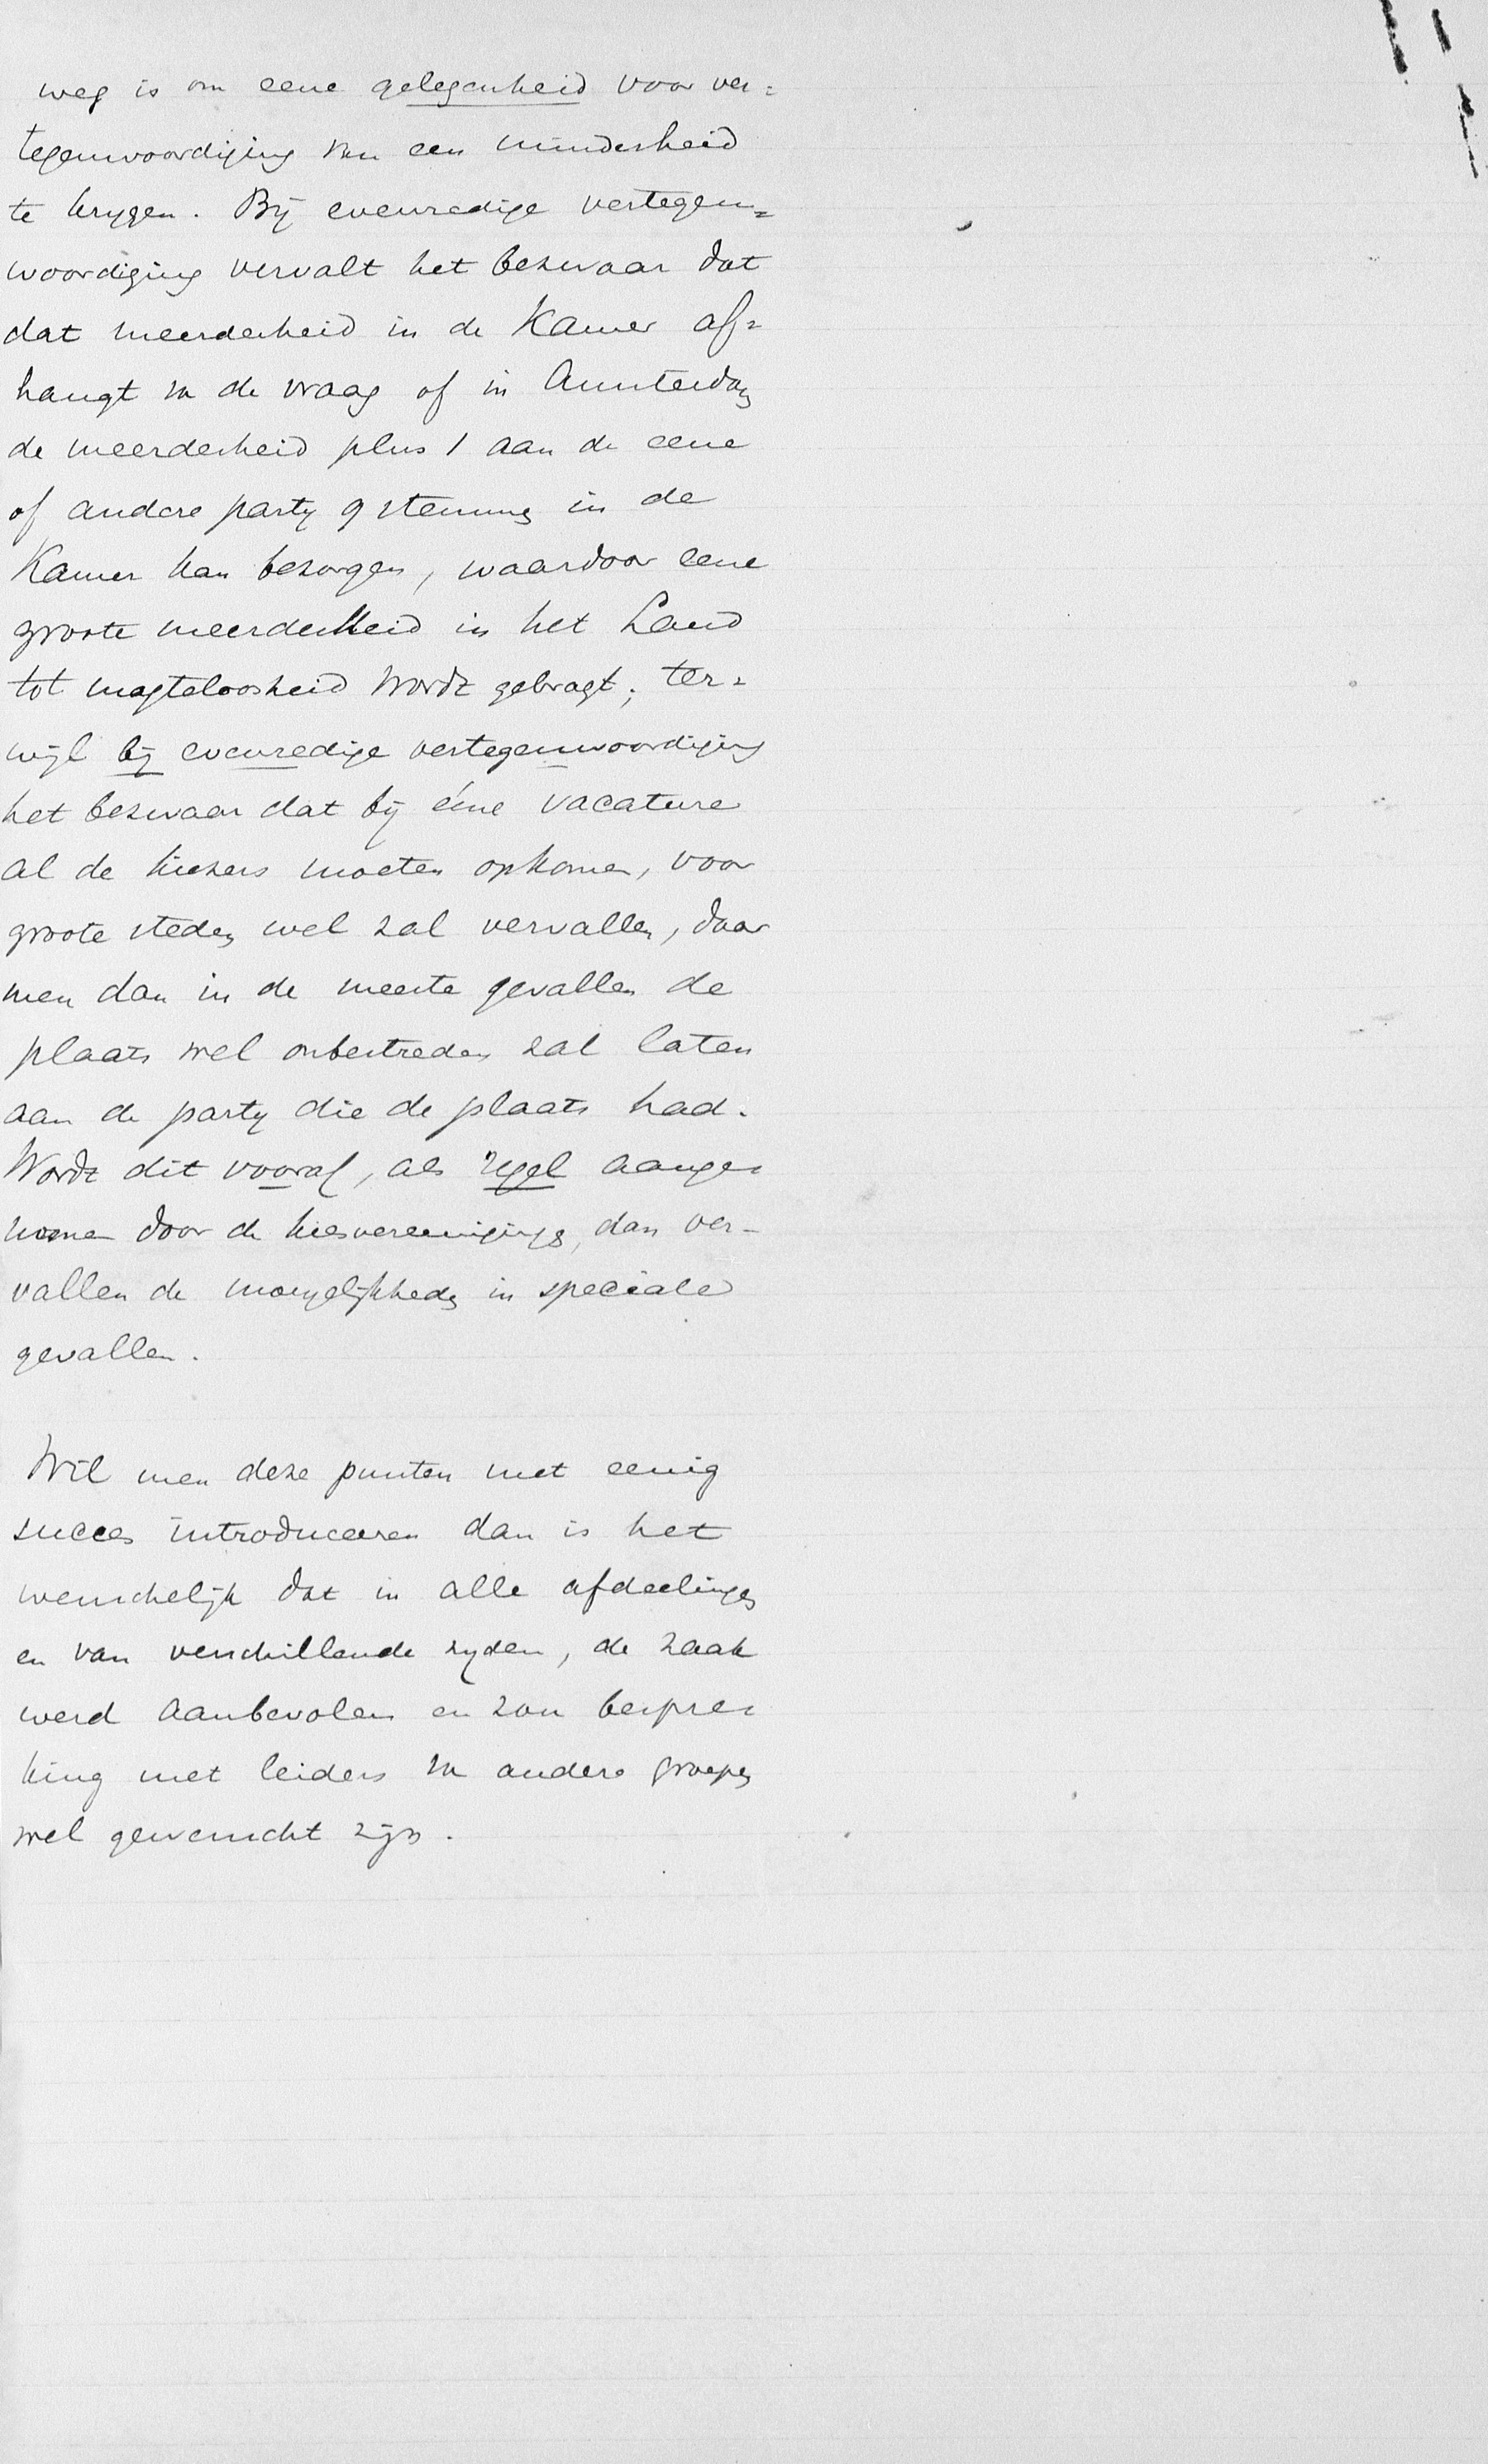 weg is om eene gelegenheid voor ver=
tegenwoordiging van een minderheid
te krygen. Bij evenredige vertegen=
woordiging vervalt het bezwaar dat
dat meerderheid in de Kamer af=
hangt van de vraag of in Amsterdam
de meerderheid plus 1 aan de eene
of andere party 9 stemmen in de
Kamer kan bezorgen, waardoor eene
groote meerderheid in het Land
tot magteloosheid wordt gebragt; ter=
wijl bij evenredige vertegenwoordiging
het bezwaar dat bij ééne vacature
al de kiezers moeten opkomen, voor
groote steden wel zal vervallen, daar
men dan in de meeste gevallen de
plaats wel onbestreden zal laten
aan de party die de plaats had.
Wordt dit vooraf, als regel aange=
nomen door de kiesvereenigingen, dan ver=
vallen de moeyelijkheden in speciale
gevallen.
Wil men deze punten met eenig
succes introduceeren dan is het
wenschelijk dat in alle afdeelingen
en van verschillende zyden, de zaak
werd aanbevolen en zou bespre=
king met leiders van andere groepen
wel gewenscht zijn.